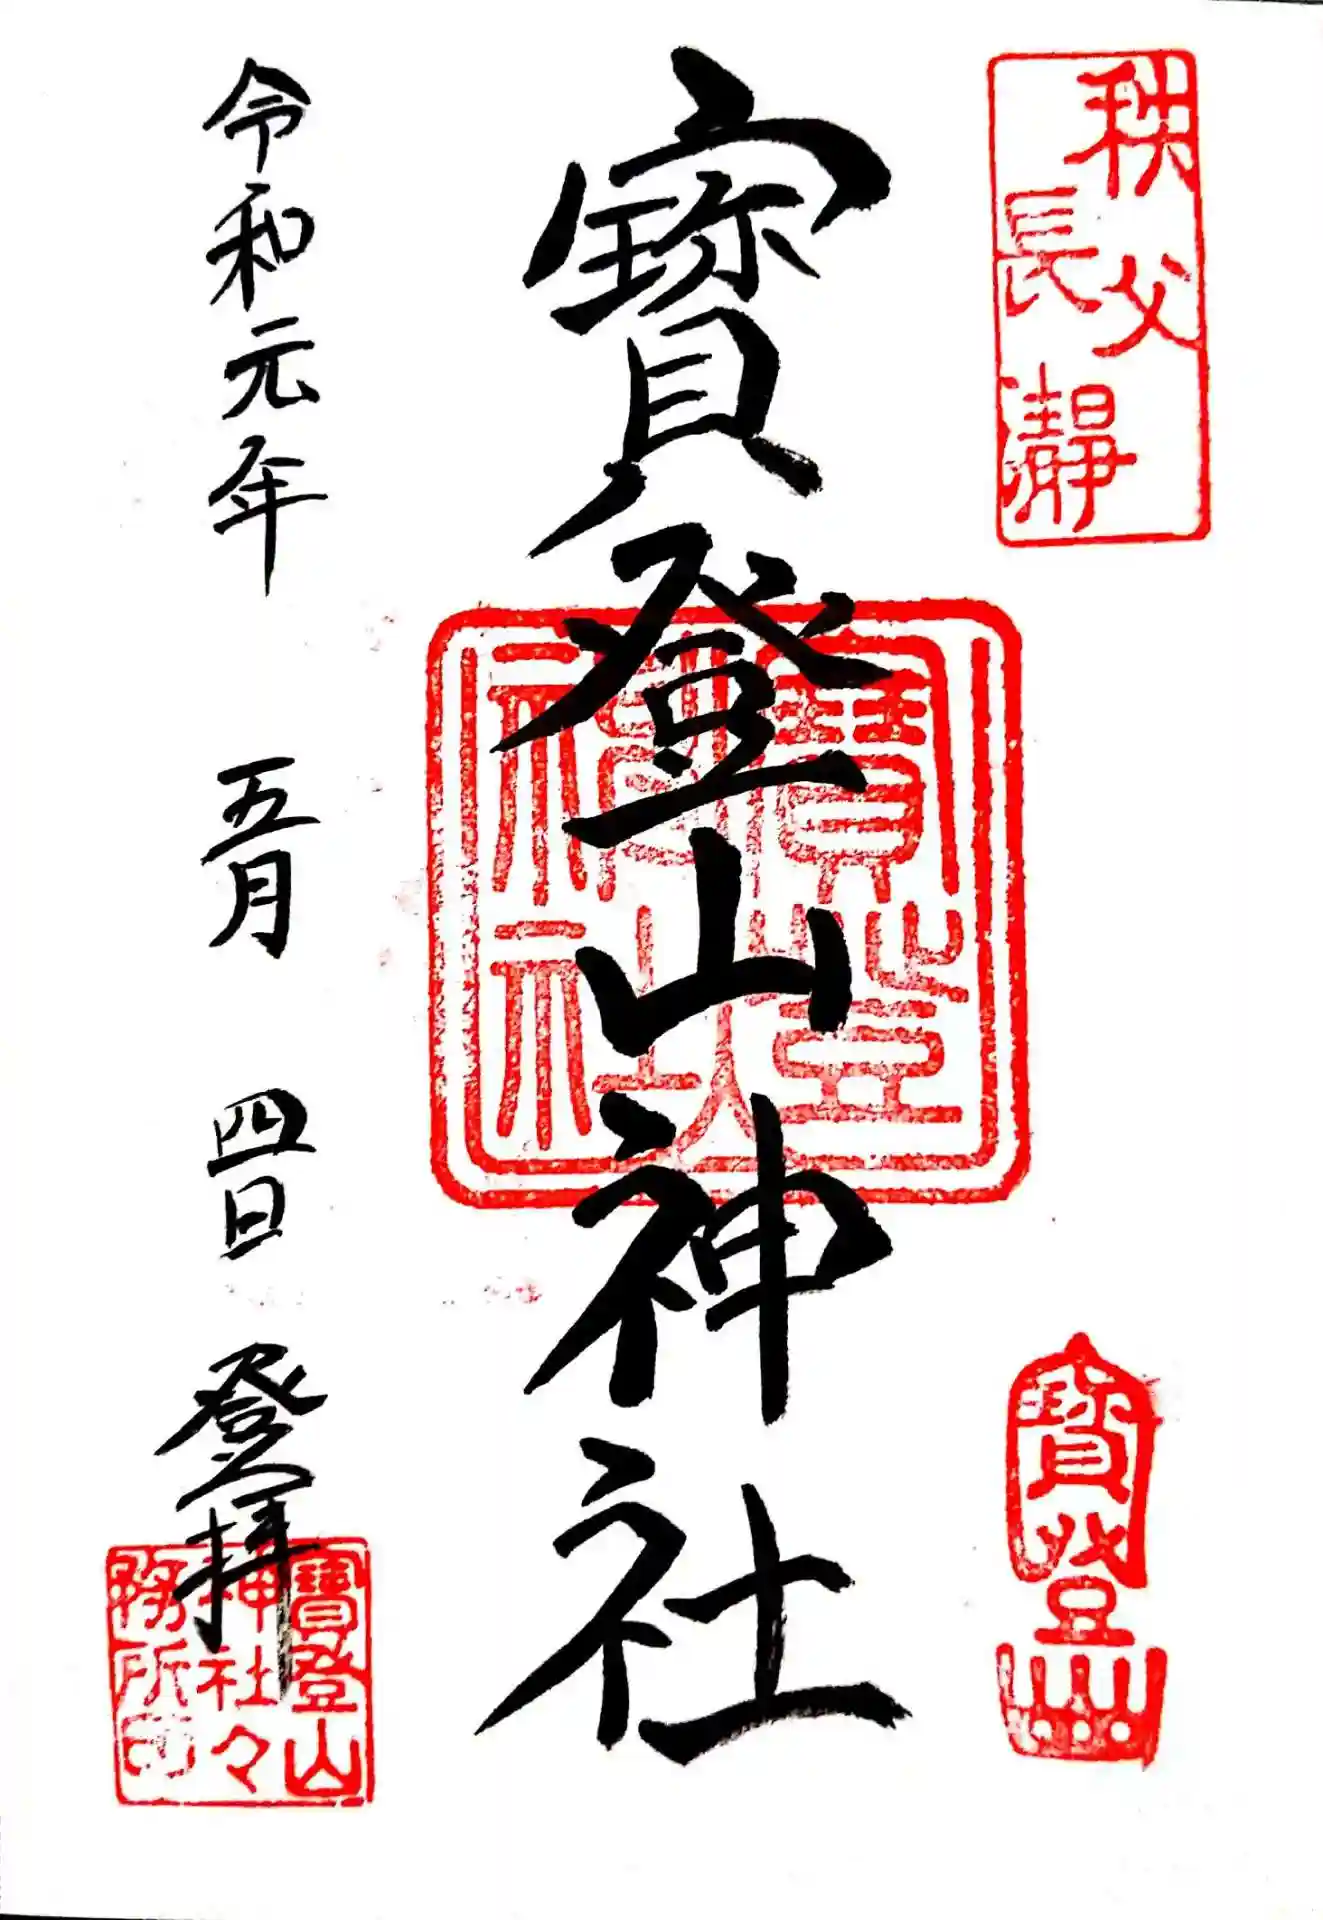 秩父
長瀞
寳登山
寳登山神社
寳登山神社
令和元年 五月 四日 登拝
寳登山
神社々
務所印